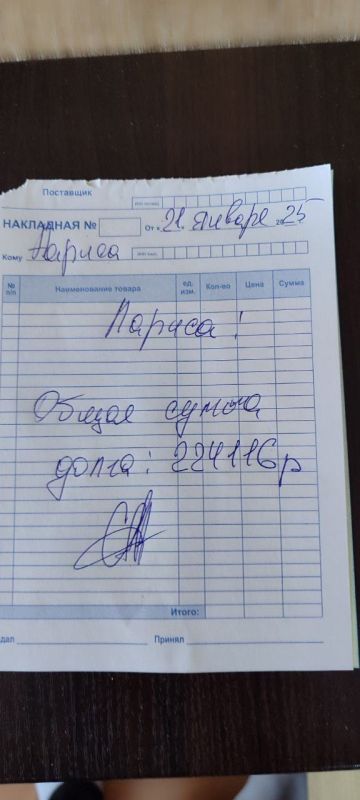 Поставщик
НАКЛАДНАЯ № От « 21 » января 2025
Кому Лариса
№ п/п Наименование товара ед. изм. Кол-во Цена Сумма
Лариса!
Общая сумма
долга: 224116р
Итого:
дал Принял